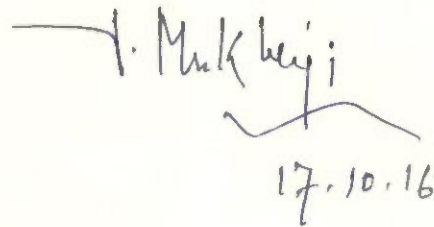 T. Mukherji
17.10.16